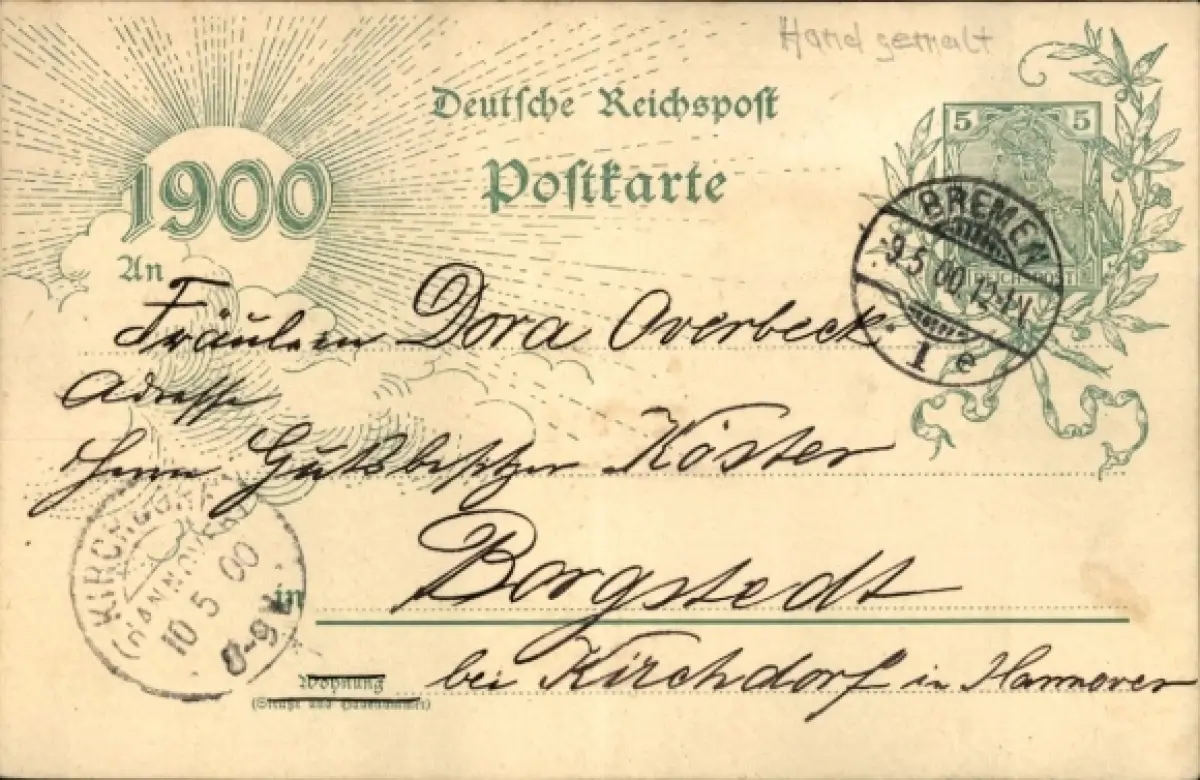 Hand gemalt
Deutsche Reichspost
Postkarte
1900
5 5
REICHSPOST
BREMEN
9.5.00.12-1N
1 e
An
Fräulein Dora Overbeck.
Adresse
Herrn Gutsbesitzer Köster
KIRCHDORF
(HANNOVER)
10 5 00
8-9V
in Borgstedt
bei Kirchdorf in Hannover
Wohnung
(Straße und Hausnummer)